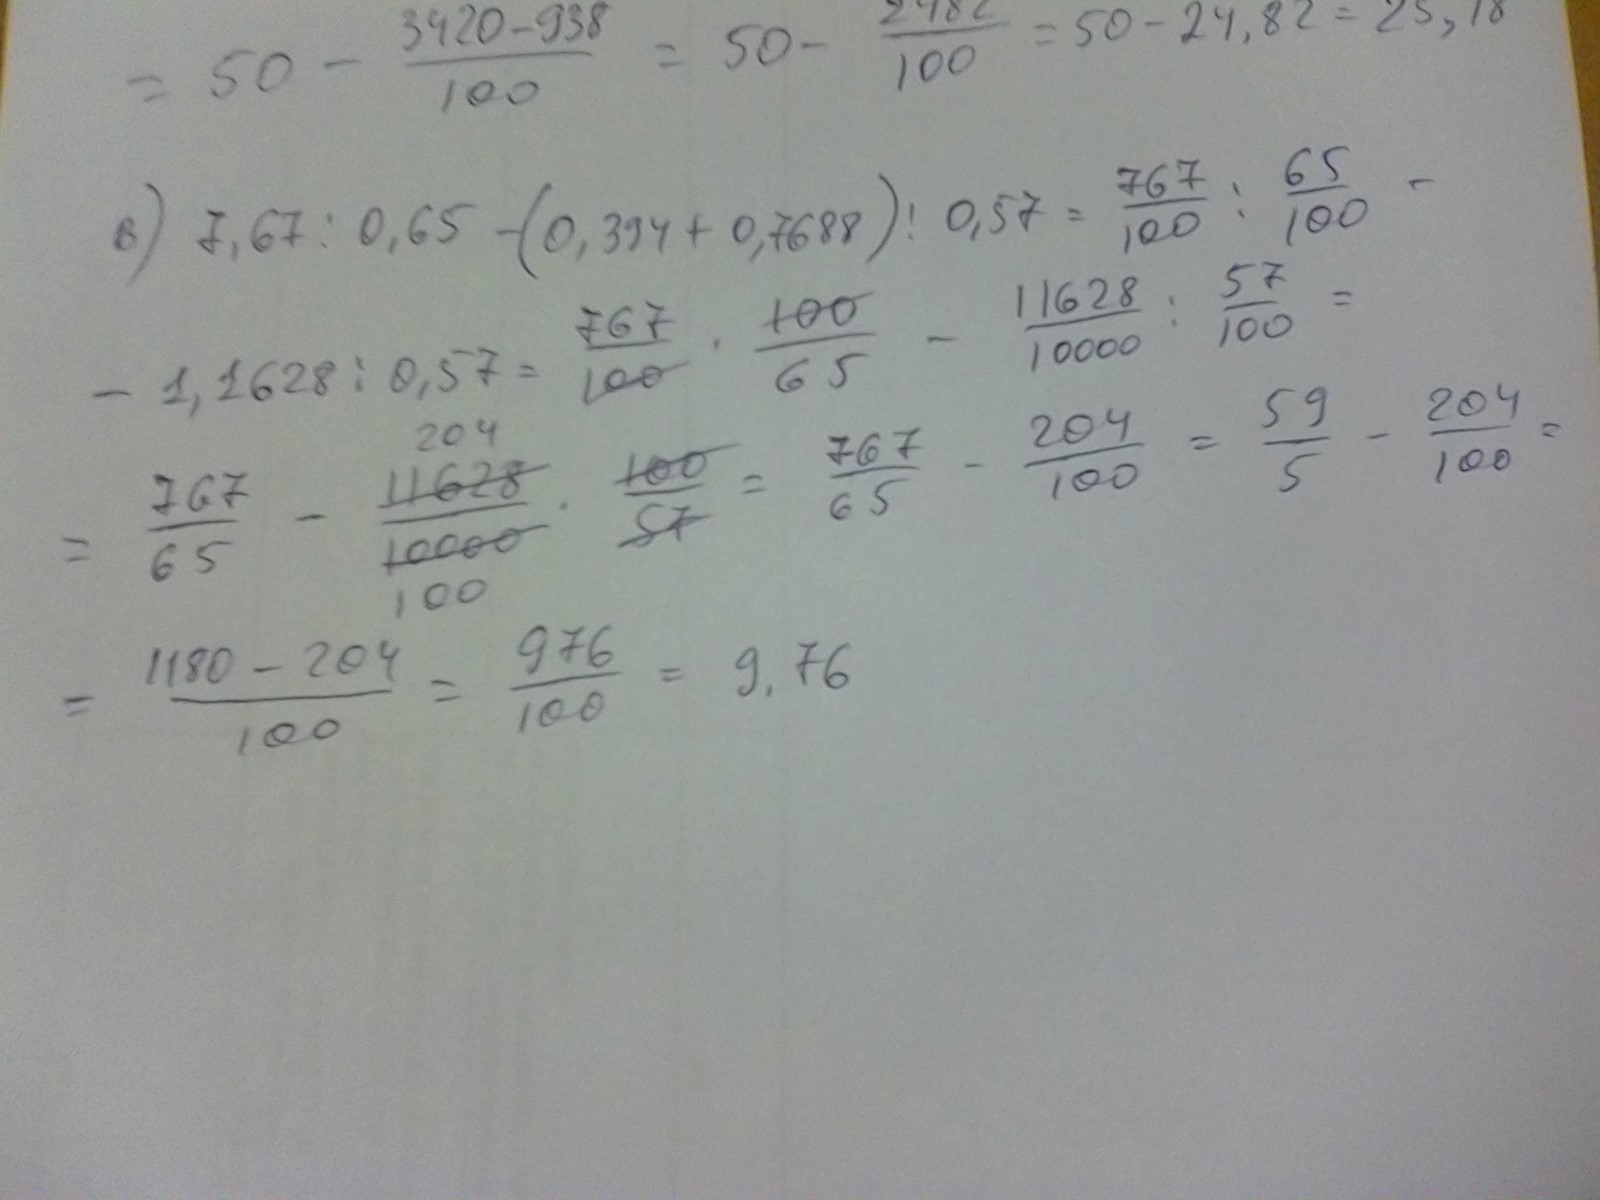 = 50 - 3420-938/100 = 50 - 2482/100 = 50 - 24,82 = 25,18
в) 7,67 : 0,65 - (0,394 + 0,7688) : 0,57 = 767/100 : 65/100 -
- 1,1628 : 0,57 = 767/100 · 100/65 - 11628/10000 : 57/100 =
204
= 767/65 - 11628/10000 · 100/57 = 767/65 - 204/100 = 59/5 - 204/100 =
100
= 1180 - 204/100 = 976/100 = 9,76